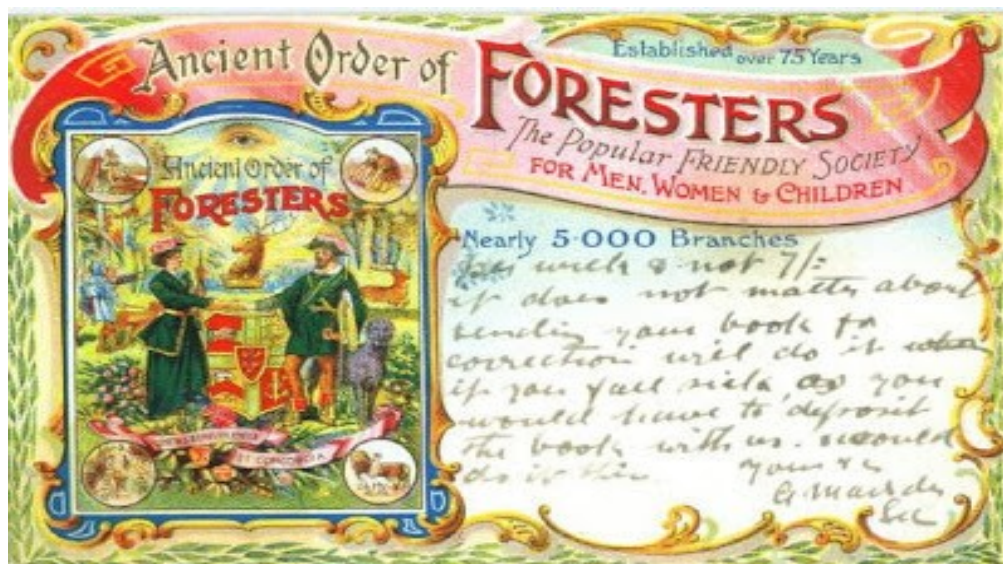 Ancient Order of
FORESTERS
Established over 75 Years
The Popular FRIENDLY SOCIETY
FOR MEN, WOMEN & CHILDREN
Ancient Order of
FORESTERS
ET CONCORDIA
Nearly 5·000 Branches
week & not 7/-
it does not matter about
sending your book for
correction will do it when
if you fall sick as you
would have to deposit
the book with us. would
do it then
yours &c
Sec